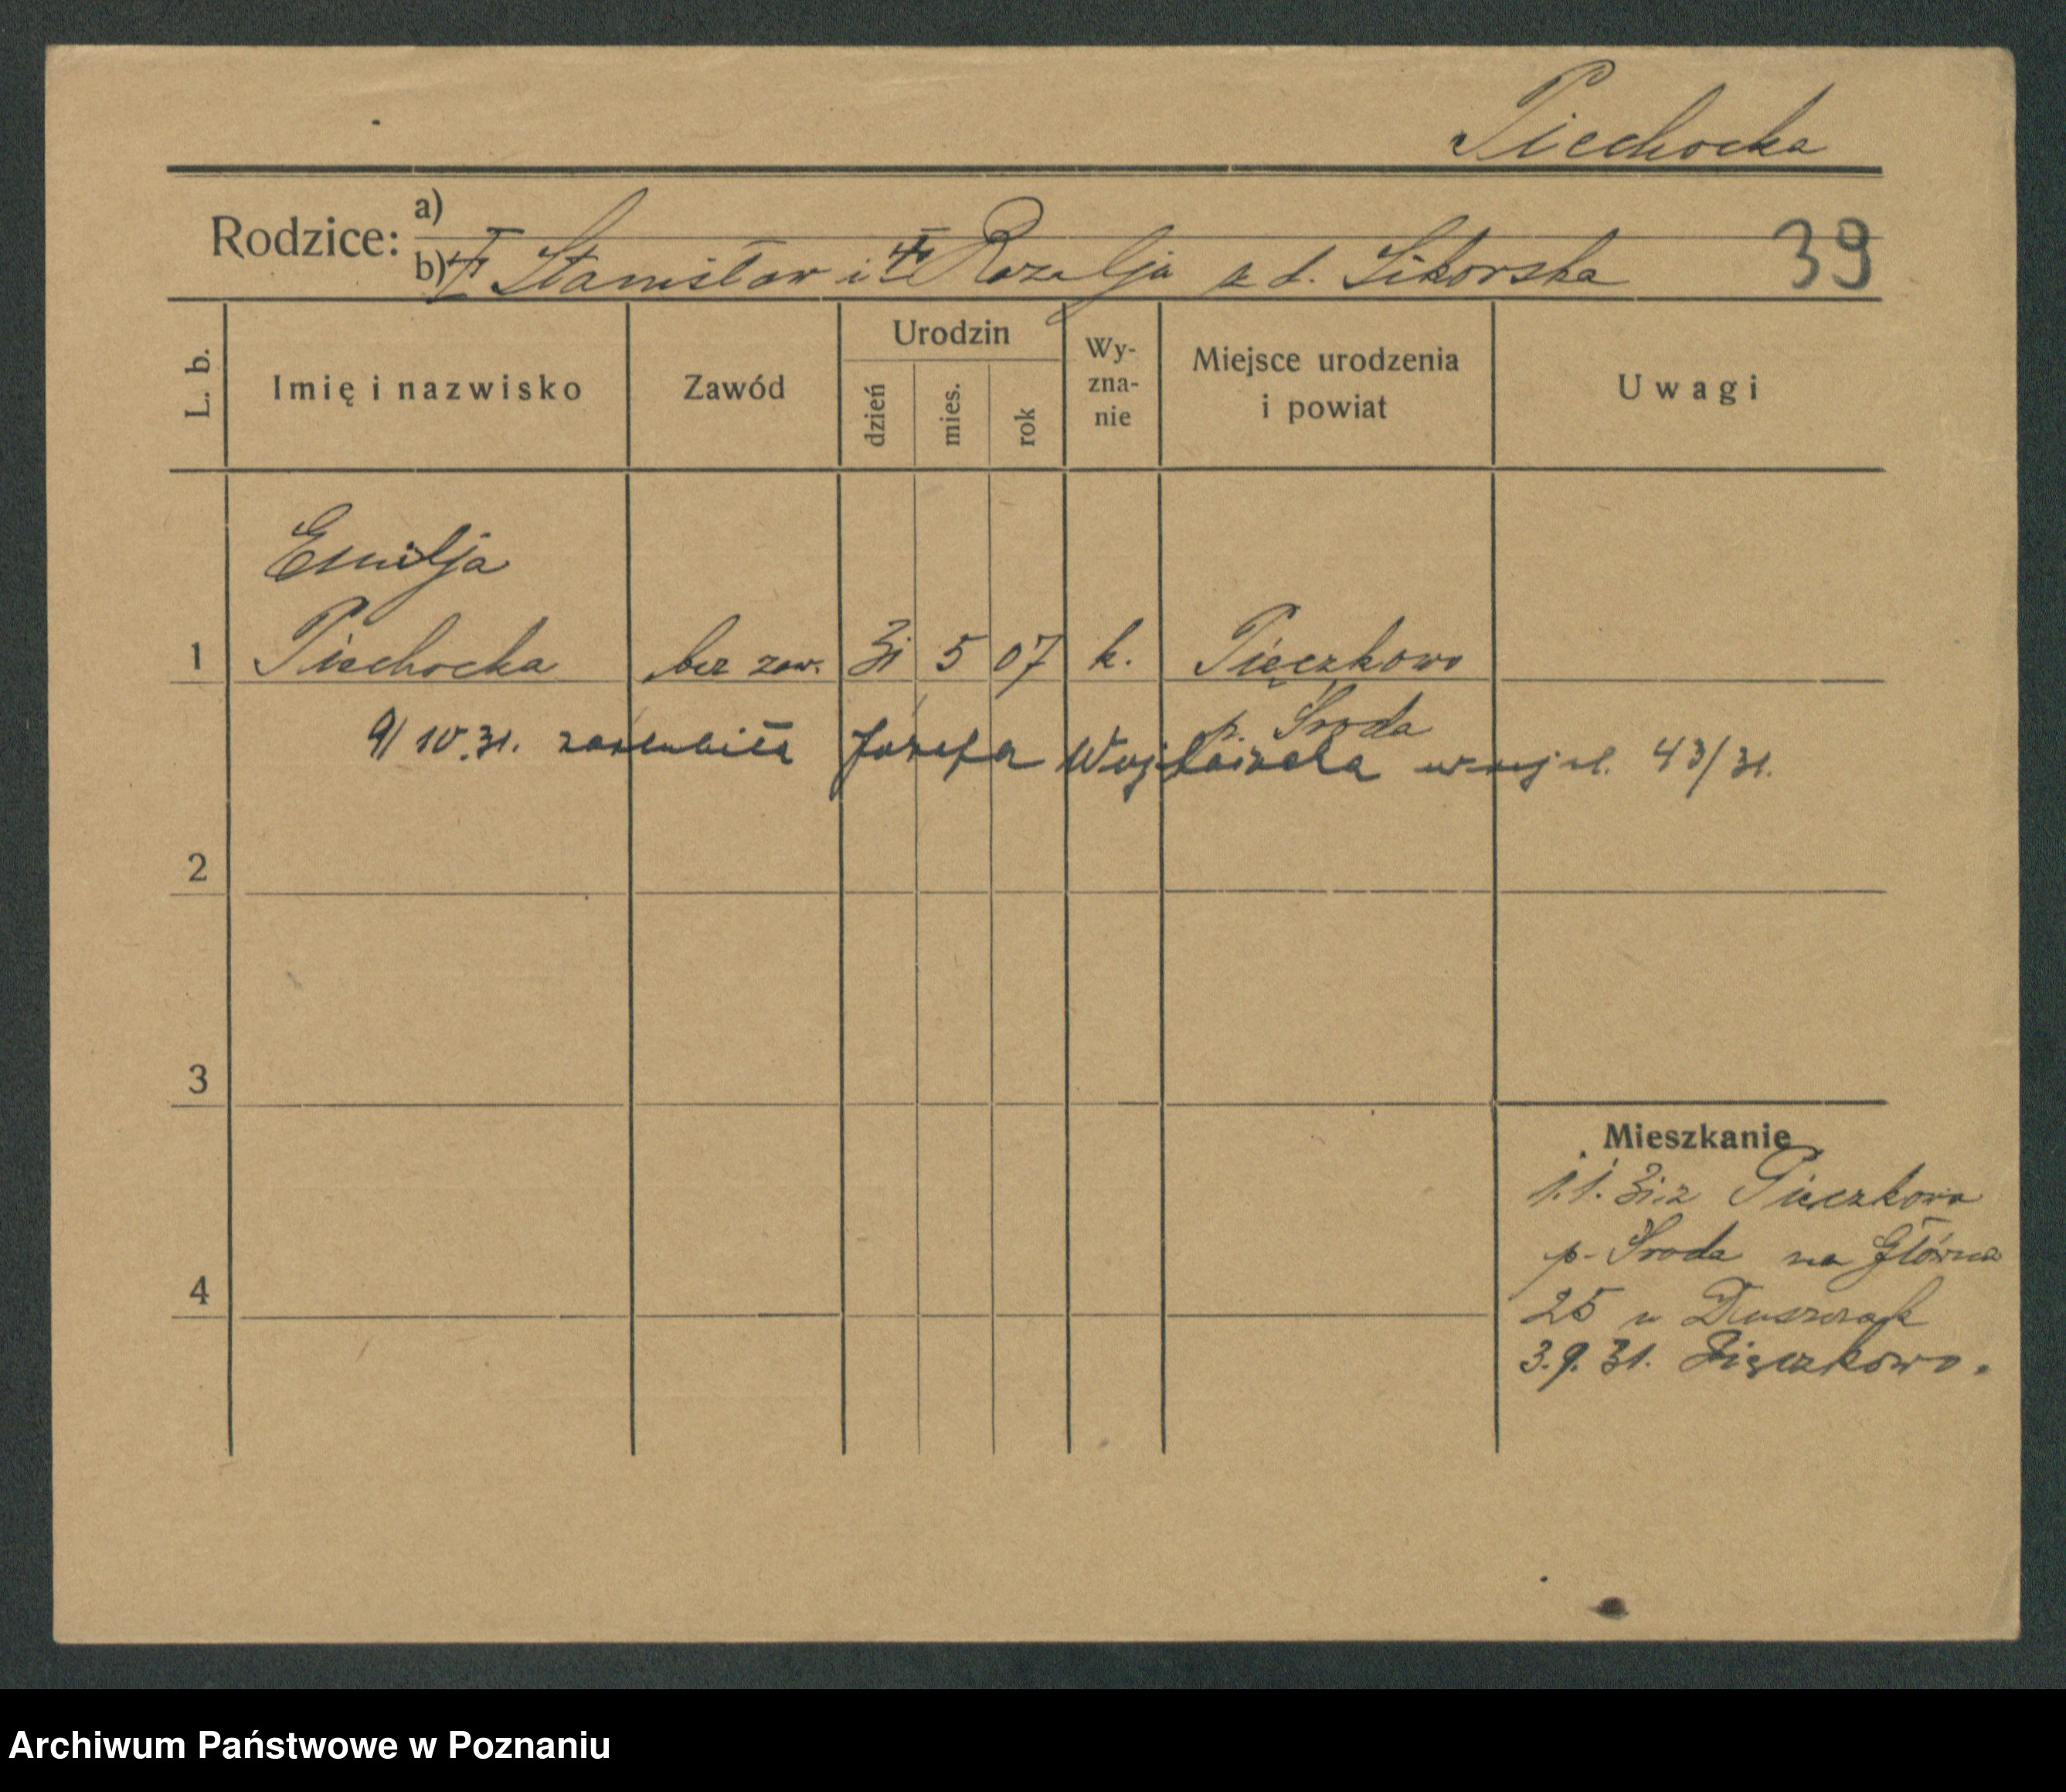 Piechocka
Rodzice: a)
b) Stanisław i Rozalja z d. Sikorska 39
L. b. Imię i nazwisko Zawód Urodzin dzień mies. rok Wy-zna-nie Miejsce urodzenia i powiat Uwagi
Emilja
1 Piechocka bez zaw. 31 5 07 k. Pięczkowo
p. Środa
9/10.31. zaślubiła Józefa 43/31.
2
3
Mieszkanie
1.1.31 z Pięczkowa
p. Środa na Główna
4
25 u
3.9.31. Pięczkowo.
Archiwum Państwowe w Poznaniu